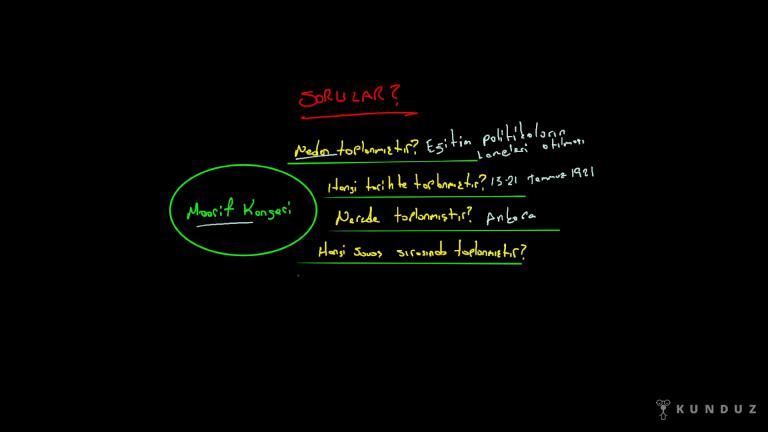 SORULAR?
Neden toplanmıştır? Eğitim politikaların
temelleri atılması
Hangi tarihte toplanmıştır? 15-21 Temmuz 1921
Maarif Kongeri
Nerede toplanmıştır? Ankara
Hangi savaş sırasında toplanmıştır?
KUNDUZ